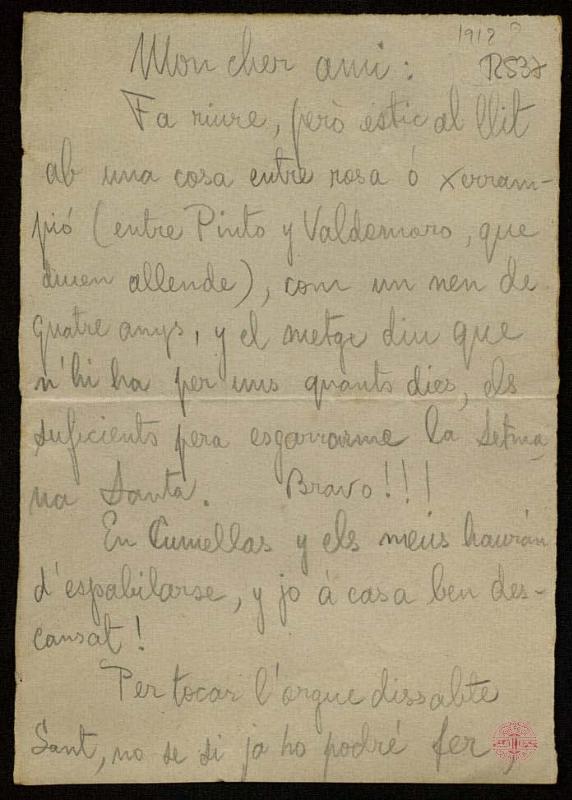 1912 ?
R537
Mon cher ami:
Fa riure, però estic al llit
ab una cosa entre rosa ó xerram-
pió (entre Pinto y Valdemoro, que
diuen allende), com un nen de
quatre anys, y el metge diu que
n'hi ha per uns quants dies, els
suficients pera esgarrarme la Setma
na Santa. Bravo!!!
En Cumellas y els meus haurán
d'espabilarse, y jo á casa ben des-
cansat!
Per tocar l'orgue dissabte
Sant, no se si ja ho podré fer,